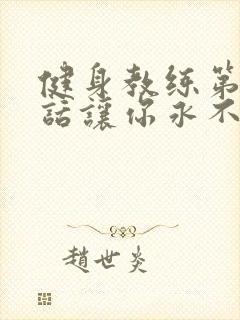 健身教练第
話讓你永不
趙世炎